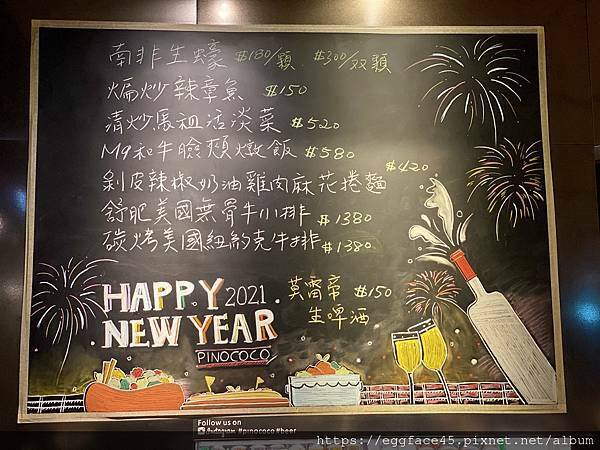 南非生蠔 $180/顆 $300/双顆
煸炒辣章魚 $150
清炒馬祖活淡菜 $520
M9和牛臉頰燉飯 $580
剝皮辣椒奶油雞肉麻花捲麵 $420
舒肥美國無骨牛小排 $1380
碳烤美國紐約克牛排 $1380
莫霄帝 $150
生啤酒
HAPPY 2021
NEW YEAR
PINOCOCO
Follow us on
Instagram #pinococo #beer
https://eggface45.pixnet.net/album